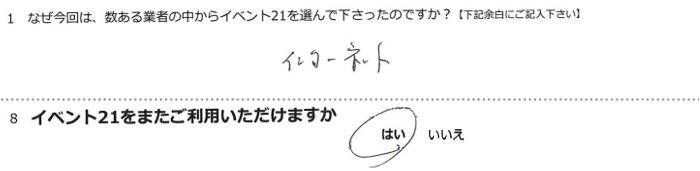 1 なぜ今回は、数ある業者の中からイベント21を選んで下さったのですか？【下記余白にご記入下さい】
インターネット
8 イベント21をまたご利用いただけますか
はい いいえ